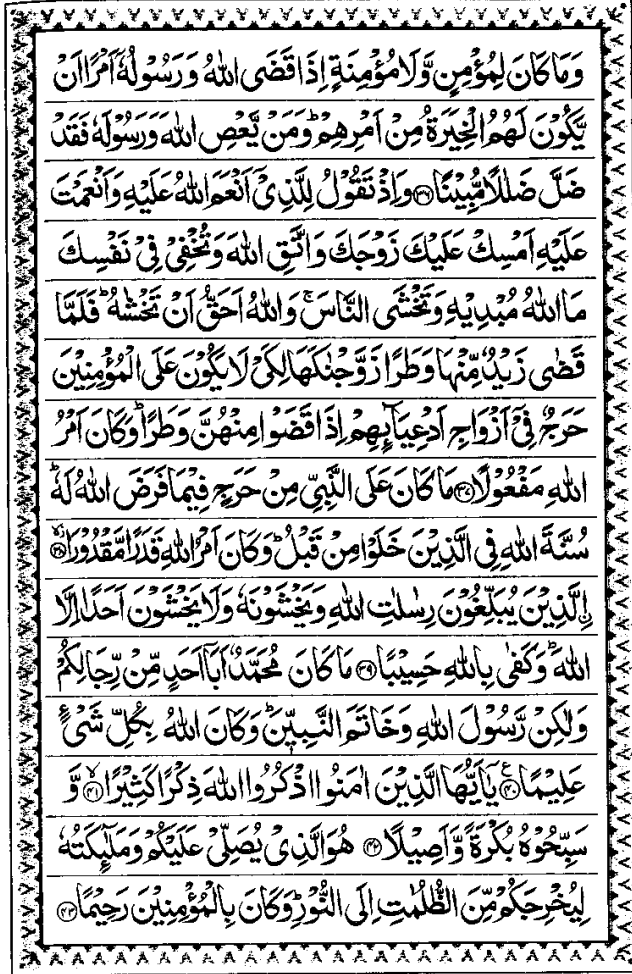 وَمَا كَانَ لِمُؤْمِنٍ وَّلَا مُؤْمِنَةٍ اِذَا قَضَى اللّٰهُ وَرَسُوْلُهٗۤ اَمْرًا اَنْ
يَّكُوْنَ لَهُمُ الْخِيَرَةُ مِنْ اَمْرِهِمْ ؕ وَمَنْ يَّعْصِ اللّٰهَ وَرَسُوْلَهٗ فَقَدْ
ضَلَّ ضَلٰلًا مُّبِيْنًا ﴿۳۶﴾ وَاِذْ تَقُوْلُ لِلَّذِيْۤ اَنْعَمَ اللّٰهُ عَلَيْهِ وَاَنْعَمْتَ
عَلَيْهِ اَمْسِكْ عَلَيْكَ زَوْجَكَ وَاتَّقِ اللّٰهَ وَتُخْفِيْ فِيْ نَفْسِكَ
مَا اللّٰهُ مُبْدِيْهِ وَتَخْشَى النَّاسَ ۚ وَاللّٰهُ اَحَقُّ اَنْ تَخْشٰىهُ ؕ فَلَمَّا
قَضٰى زَيْدٌ مِّنْهَا وَطَرًا زَوَّجْنٰكَهَا لِكَيْ لَا يَكُوْنَ عَلَى الْمُؤْمِنِيْنَ
حَرَجٌ فِيْۤ اَزْوَاجِ اَدْعِيَآىِٕهِمْ اِذَا قَضَوْا مِنْهُنَّ وَطَرًا ؕ وَكَانَ اَمْرُ
اللّٰهِ مَفْعُوْلًا ﴿۳۷﴾ مَا كَانَ عَلَى النَّبِيِّ مِنْ حَرَجٍ فِيْمَا فَرَضَ اللّٰهُ لَهٗ ؕ
سُنَّةَ اللّٰهِ فِي الَّذِيْنَ خَلَوْا مِنْ قَبْلُ ؕ وَكَانَ اَمْرُ اللّٰهِ قَدَرًا مَّقْدُوْرًا ﴿۳۸﴾
اِۨلَّذِيْنَ يُبَلِّغُوْنَ رِسٰلٰتِ اللّٰهِ وَيَخْشَوْنَهٗ وَلَا يَخْشَوْنَ اَحَدًا اِلَّا
اللّٰهَ ؕ وَكَفٰى بِاللّٰهِ حَسِيْبًا ﴿۳۹﴾ مَا كَانَ مُحَمَّدٌ اَبَاۤ اَحَدٍ مِّنْ رِّجَالِكُمْ
وَلٰكِنْ رَّسُوْلَ اللّٰهِ وَخَاتَمَ النَّبِيّٖنَ ؕ وَكَانَ اللّٰهُ بِكُلِّ شَيْءٍ
عَلِيْمًا ﴿۴۰﴾ ع يٰۤاَيُّهَا الَّذِيْنَ اٰمَنُوا اذْكُرُوا اللّٰهَ ذِكْرًا كَثِيْرًا ﴿۴۱﴾ ۙ وَّ
سَبِّحُوْهُ بُكْرَةً وَّاَصِيْلًا ﴿۴۲﴾ هُوَ الَّذِيْ يُصَلِّيْ عَلَيْكُمْ وَمَلٰٓىِٕكَتُهٗ
لِيُخْرِجَكُمْ مِّنَ الظُّلُمٰتِ اِلَى النُّوْرِ ؕ وَكَانَ بِالْمُؤْمِنِيْنَ رَحِيْمًا ﴿۴۳﴾